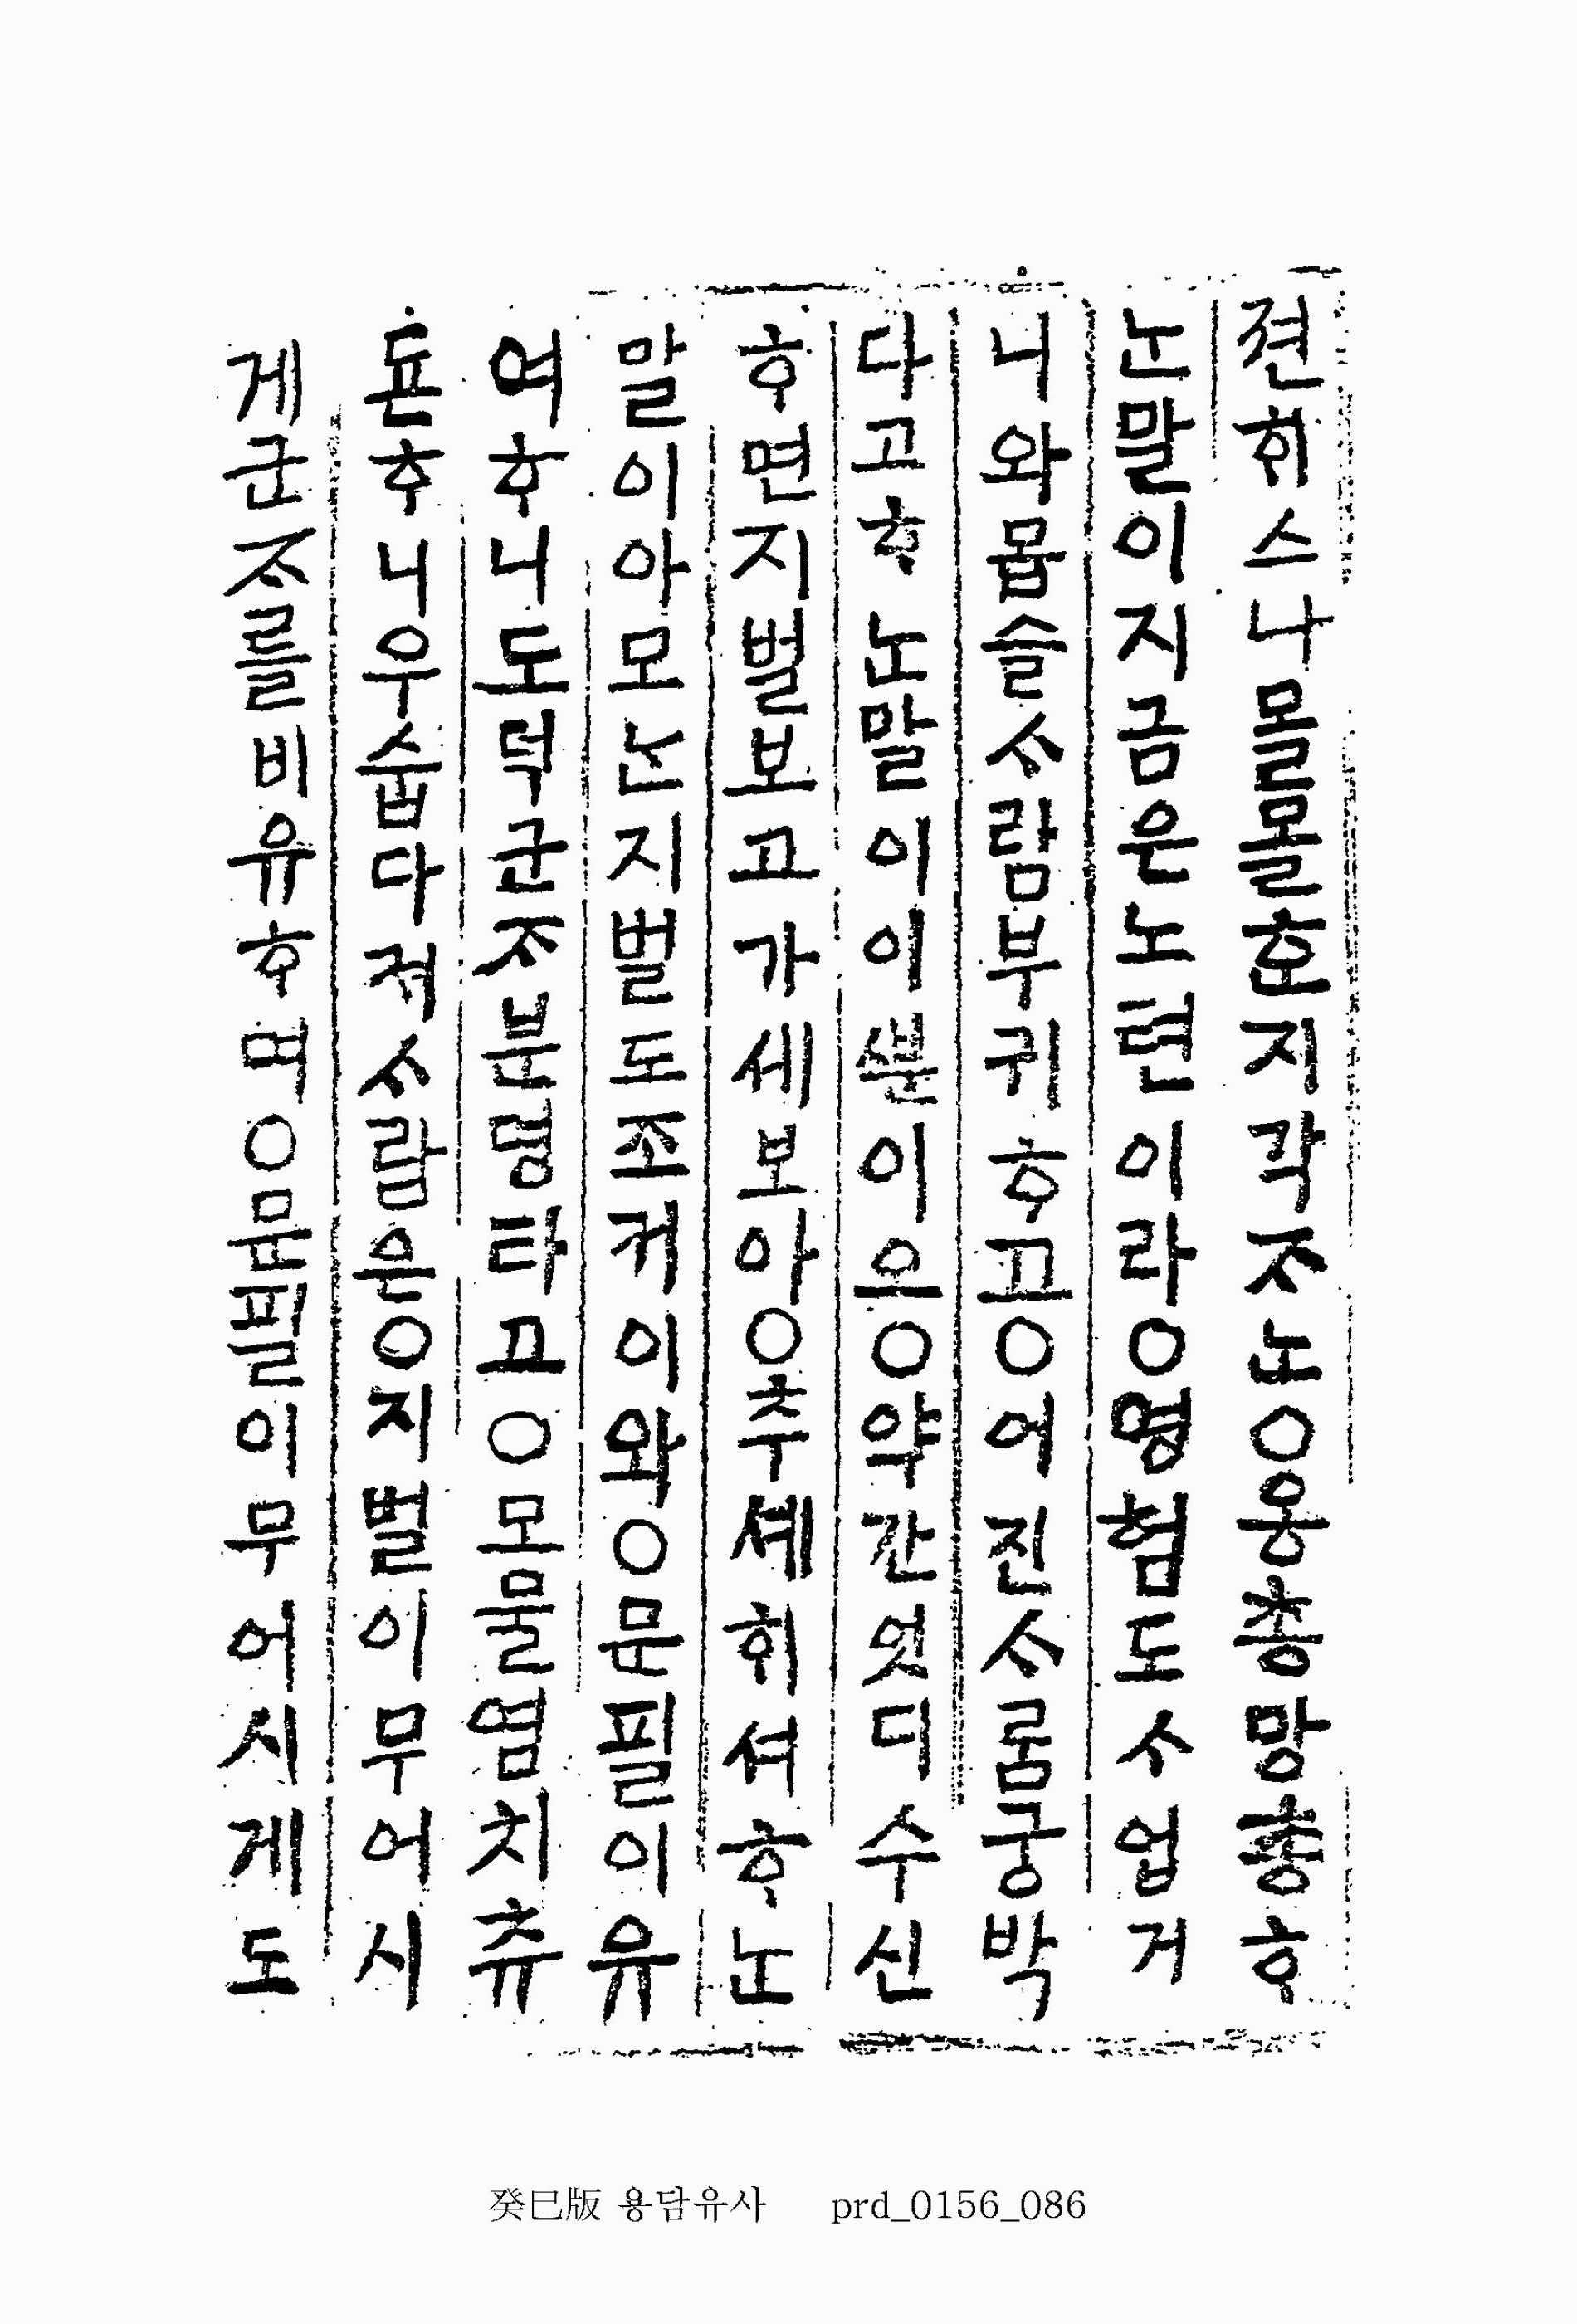 젼ᄒᆡ스나몰몰ᄒᆞᆫ지각ᄌᆞᄂᆞᆫ○옹총망총ᄒᆞ
ᄂᆞᆫ말이지금은노텬이라○영험도ᄉᆞ업거
니와몹슬ᄉᆞ람부귀ᄒᆞ고○어진ᄉᆞ롬궁박
다고ᄒᆞᄂᆞᆫ말이이ᄲᅮᆫ이오○약간엇디수신
ᄒᆞ면지벌보고가세보아○추셰ᄒᆡ셔ᄒᆞᄂᆞᆫ
말이아모ᄂᆞᆫ지벌도조커이와○문필이유
여ᄒᆞ니도덕군ᄌᆞ분명타고○모물염치츄
됸ᄒᆞ니우숩다져ᄉᆞ람은○지벌이무어시
게군ᄌᆞ를비유ᄒᆞ며○문필이무어시게도
癸巳版 용담유사 prd_0156_086